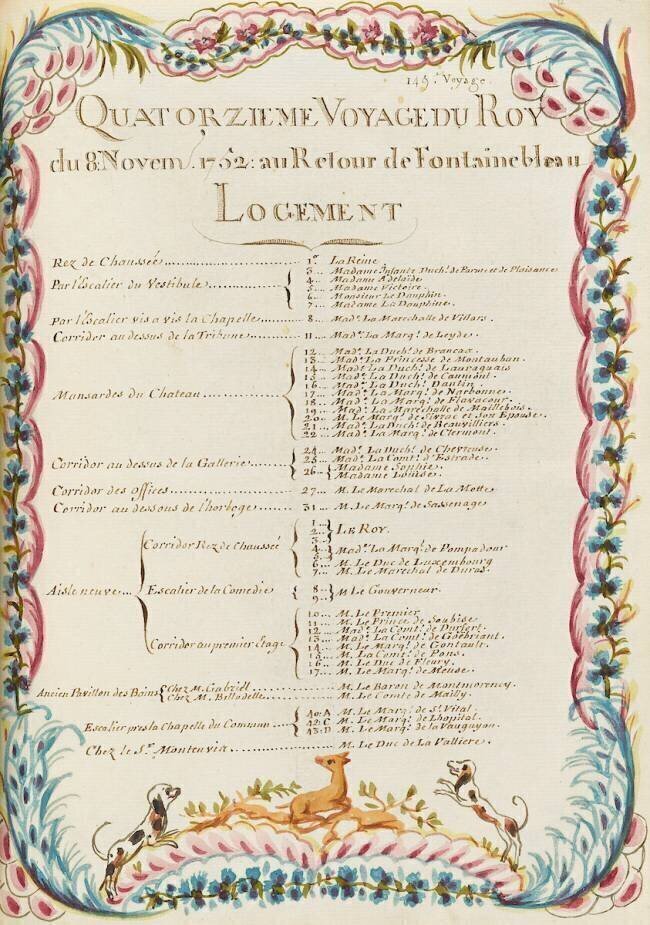 145.e Voyage.
QUATORZIEME VOYAGE DU ROY
du 8. Novem. 1752: au Retour de Fontainebleau
LOGEMENT
Rez de Chaussée 1er La Reine
3 Madame Infante Duch.e de Parme et de Plaisance
4 Madame Adelaide
Par l'Escalier du Vestibule 5 Madame Victoire
6 Monsieur Le Dauphin
7 Madame La Dauphine
Par l'Escalier vis a vis la Chapelle 8 Mad.e La Marechalle de Villars.
Corridor au dessus de la Tribune 11 Mad.e La Marq.e de Leyde.
12 Mad.e La Duch.e de Brancas.
13 Mad.e La Princesse de Montauban.
14 Mad.e La Duch.e de Lauraguais
15 Mad.e La Duch.e de Caumont.
16 Mad.e La Duch.e Dantin.
Mansardes du Chateau 17 Mad.e La Marq.e de Narbonne.
18 Mad.e La Marq.e de Flavacour.
19 Mad.e La Maréchalle de Maillebois.
20 M. Le Marq. de Sivrac et son Epouse.
21 Mad.e La Duch.e de Beauvilliers.
22 Mad.e La Marq.e de Clermont.
24 Mad.e La Duch.e de Chevreuse.
Corridor au dessus de la Gallerie 25 Mad.e La Comt.e d'Estrade.
26 Madame Sophie.
Madame Louise.
Corridor des offices 27 M. Le Marechal de La Motte
Corridor au dessous de l'horloge 31 M. Le Marq. de Sassenage
Aisle neuve
Corridor Rez de Chaussée
1
2 LE ROY.
3
4 Mad.e La Marq.e de Pompadour
5
6 M. Le Duc de Luxembourg
7 M. Le Marechal de Duras.
Escalier de la Comedie 8 M Le Gouverneur.
9
Corridor au premier Etage
10 M. Le Premier
11 M. Le Prince de Soubise
12 Mad.e La Comt.e de Durfort.
13 Mad.e La Comt.e de Goesbriant.
14 M. Le Marq. de Gontault.
15 M. La Comt.e de Pons.
16 M. Le Duc de Fleury.
17 M. Le Marq. de Meuse.
Ancien Pavillon des Bains Chez M. Gabriel M. Le Baron de Montmorency.
Chez M. Billadelle M. Le Comte de Mailly.
40: A M. Le Marq. de St. Vital.
Escalier pres la Chapelle du Commun 42: C M. Le Marq. de Lhopital.
43: D M. Le Marq. de la Vauguyon.
Chez le Sr. Montenvia M. Le Duc de La Valliere.